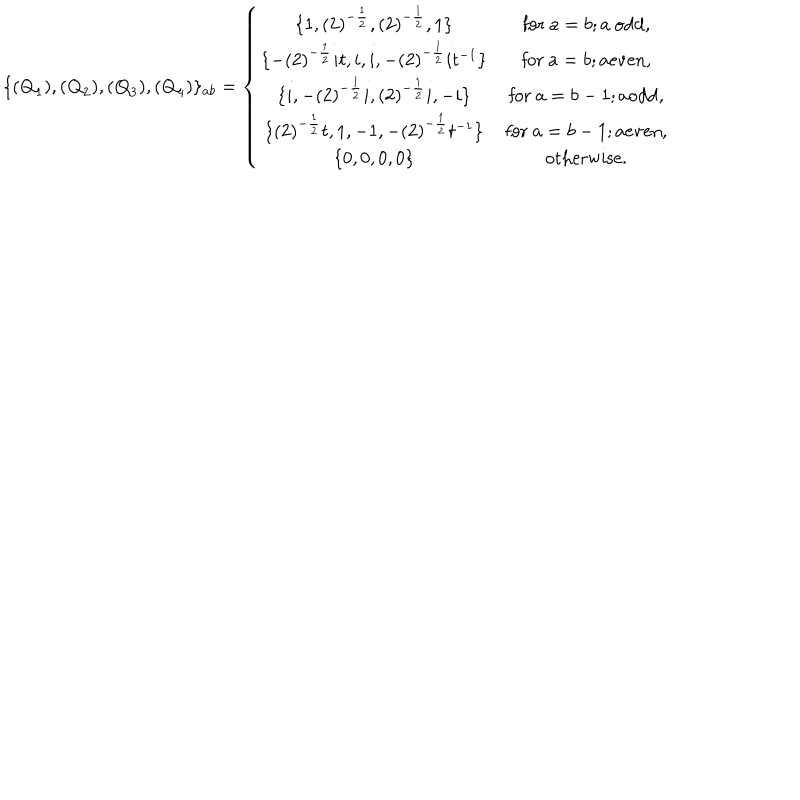 \{(Q_1), (Q_2), (Q_3), (Q_4)\}_{ab} = \begin{cases} \{1, (2)^{-\frac{1}{2}}, (2)^{-\frac{1}{2}}, 1\} & \text{for } a = b; a \text{ odd}, \\
\{-(2)^{-\frac{1}{2}}it, i, i, -(2)^{-\frac{1}{2}}it^{-1}\} & \text{for } a = b; a\text{even}, \\
\{i, -(2)^{-\frac{1}{2}}i, (2)^{-\frac{1}{2}}i, -i\} & \text{for } a = b - 1; a\text{odd}, \\
\{(2)^{-\frac{1}{2}}t, 1, -1, -(2)^{-\frac{1}{2}}t^{-1}\} & \text{for } a = b - 1; a\text{even}, \\
\{0, 0, 0, 0\} & \text{otherwise}. \end{cases}